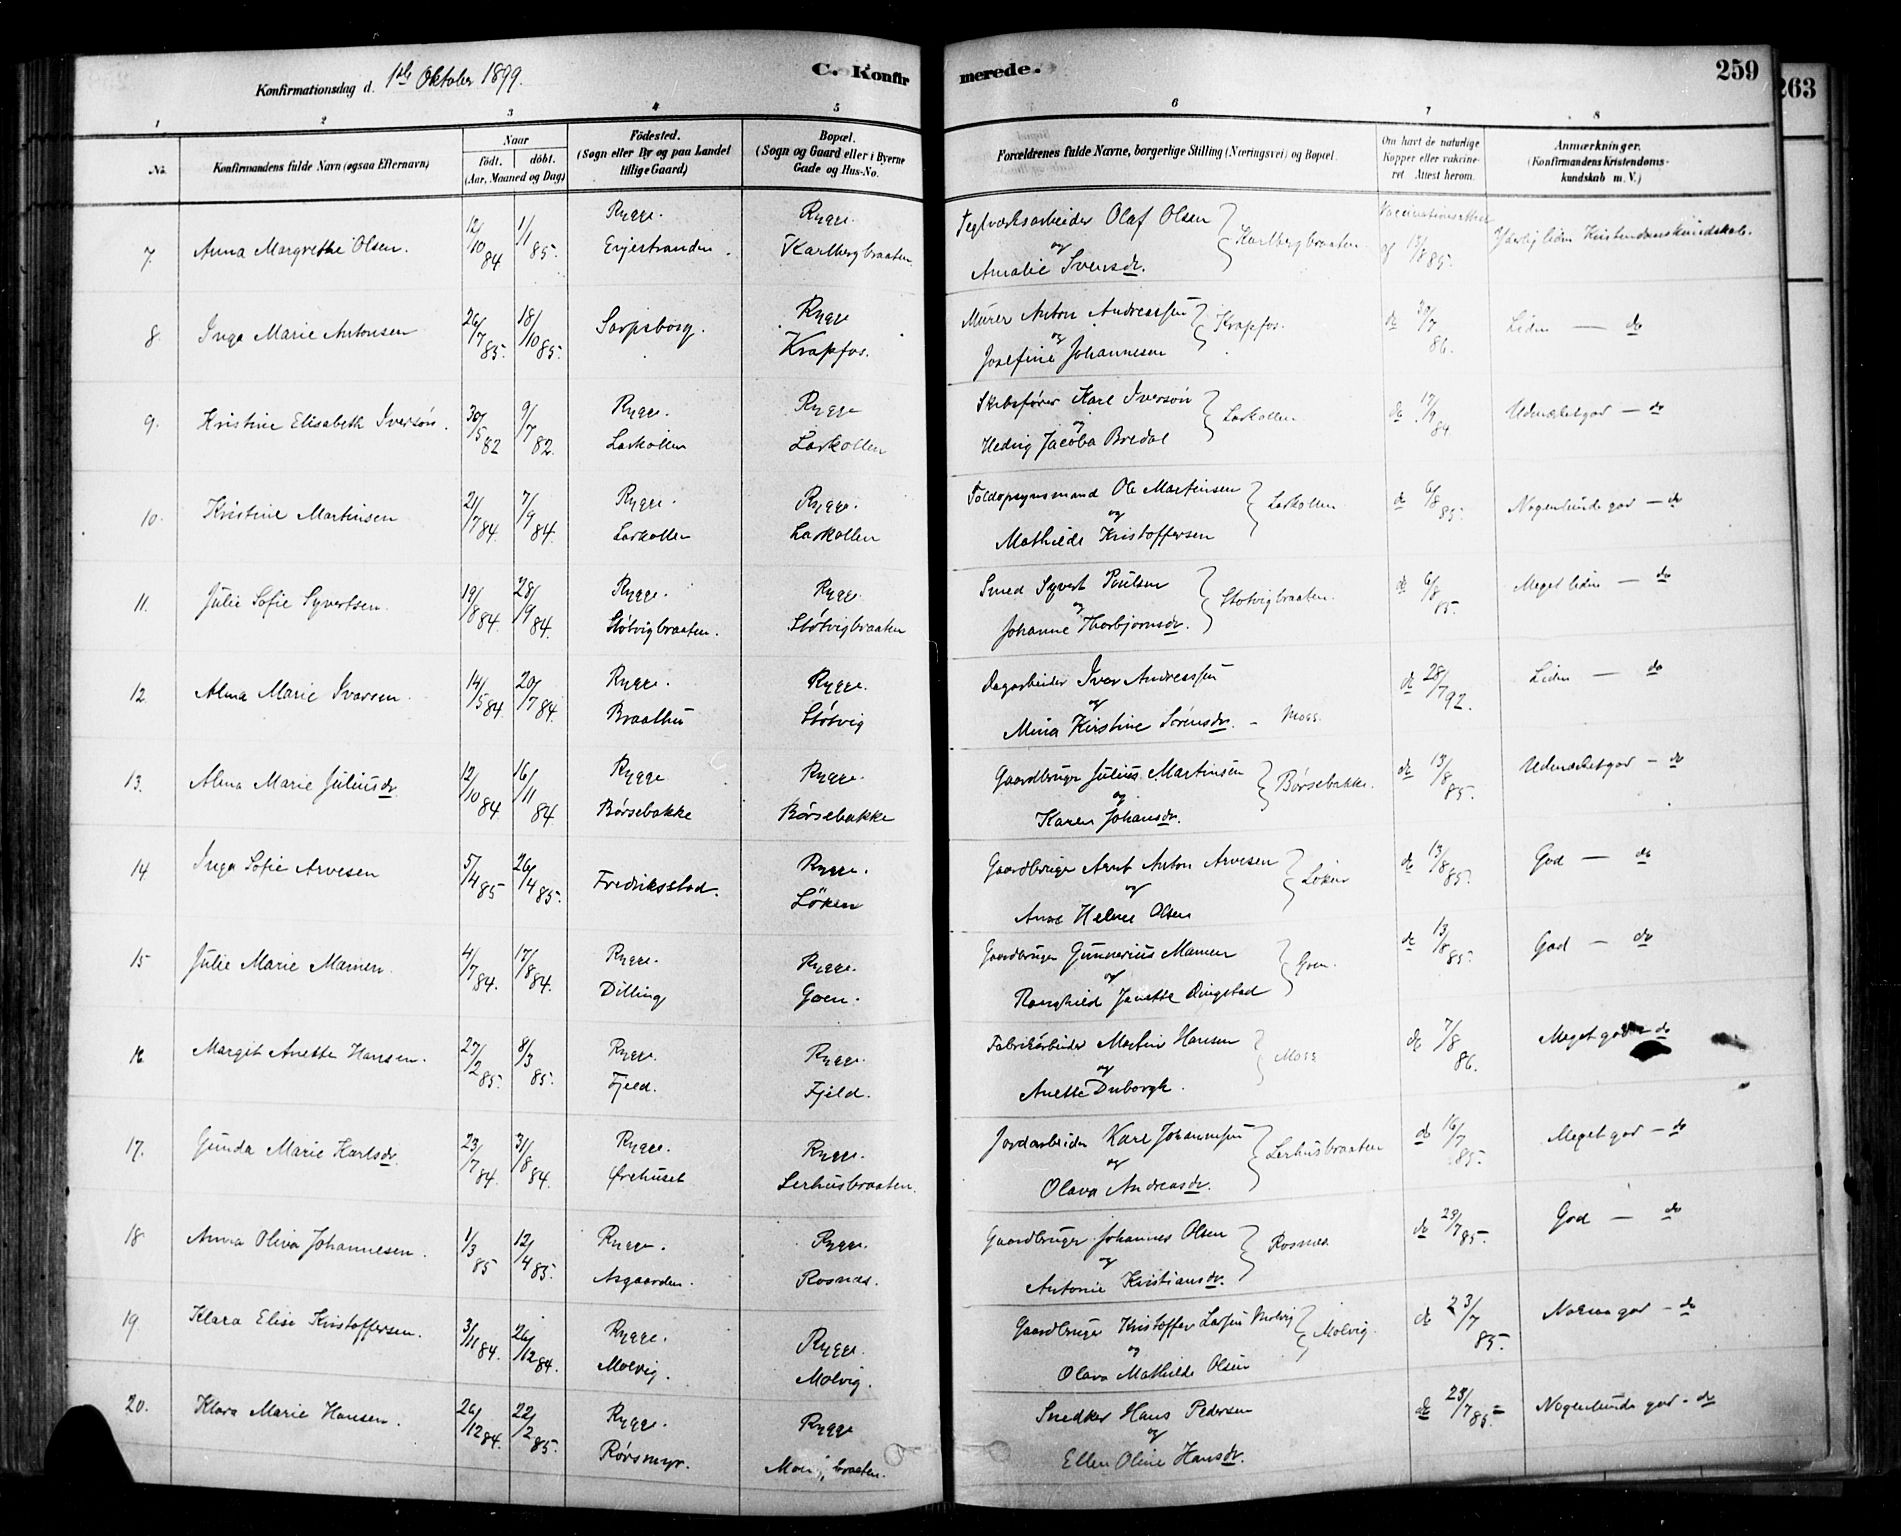 Konfirmationsdag d. 1ste Oktober 1899.
C. Konfirmerede.
259
263
1 2 3 4 5 6 7 8
No.
Konfirmandens fulde Navn (ogsaa Efternavn)
Naar
födt. döbt.
(Aar, Maaned og Dag)
Födested.
(Sogn eller By og paa Landet
tillige Gaard)
Bopæl.
(Sogn og Gaard eller i Byerne
Gade og Hus-No.
Forældrenes fulde Navne, borgerlige Stilling (Næringsvei) og Bopæl.
Om havt de naturlige
Kopper eller vakcine-
ret Attest herom.
Anmærkninger.
(Konfirmandens Kristendoms-
kundskab m. V.)
7. Anna Margrethe Olsen. 12/10 84 1/1 85. Rygge. Rygge. Teglværksarbeider Olaf Olsen
Evjestranden. Karlbergbraaten og Amalie Svensdr. Karlbergbraaten af 13/8 85. Kristendomskundskab.
8. Inga Marie Antonsen 26/7 85. 18/10 85. Sarpsborg. Rygge Murer Anton Andreassen
Krapfos. og Josefine Johannesen Krapfos. do 30/7 86. Liden — do
9. Kristine Elisabeth Iversøn. 30/5 82 9/7 82. Rygge. Rygge Skibsfører Karl Iversøn
Larkollen Larkollen og Hedvig Jacoba Bredal Larkollen do 17/9 84. Udmærketgod — do
10. Kristine Martinsen 21/7 84. 7/9 84. Rygge. Rygge. Toldopsynsmand Ole Martinsen
Larkollen Larkollen og Mathilde Kristoffersen Larkollen do 6/8 85. Nogenlunde god — do
11. Julie Sofie Syvertsen. 19/8 84. 28/9 84. Rygge. Rygge. Smed Syvert Poulsen
Støtvigbraaten. Støtvigbraaten og Johanne Thorbjørnsdr. Støtvigbraaten. do 6/8 85. Meget liden — do
12. Alma Marie Ivarsen. 14/5 84. 20/7 84. Rygge. Rygge. Dagarbeider Iver Andreassen
Braathen Støtvig og Mina Kirstine Sörensdr. – Moss. do 28/7 92. Liden — do
13. Alma Marie Juliusdr. 12/10 84. 16/11 84. Rygge Rygge. Gaardbruger Julius Martinsen
Børsebakke Børsebakke og Karen Johansdr. Børsebakke. do 13/8 85. Udmærketgod — do
14 Inga Sofie Arvesen 5/4 85 26/4 85. Fredriksstad. Rygge. Gaardbruger Arnt Anton Arvesen
Löken og Anne Helene Olsen Löken do 13/8 85. God — do
15 Julie Marie Mamen. 4/7 84. 17/8 84. Rygge. Rygge. Gaardbruger Gunnerius Mamen
Dilling Goen. og Ranghild Janette Ringstad Goen. do 13/8 85. God — do
16 Margit Anette Hansen. 27/2 85. 8/3 85. Rygge. Rygge. Fabrikarbeider Martin Hansen
Fjeld. Fjeld. og Anette Duborgh. Moss do 7/8 86. Meget god — do
17. Gunda Marie Karlsdr. 23/7 84. 31/8 84. Rygge. Rygge. Jordarbeider Karl Johannesen
Ørehuset Lerhusbraaten. og Olava Andreasdr. Lerhusbraaten do 16/7 85. Meget god — do
18. Anna Oliva Johannesen. 1/3 85 12/4 85. Rygge. Rygge. Gaardbruger Johannes Olsen
Asgaarden. Rosnæs. og Antonie Kristiansdr. Rosnæs do 29/7 85. God — do
19. Klara Elise Kristoffersen. 3/11 84. 26/12 84. Rygge. Rygge. Gaardbruger Kristoffer Larsen Molvig
Molvig. Molvig. og Olava Mathilde Olsen Molvig. do 23/7 85. god — do
20. Klara Marie Hansen. 26/12 84. 22/2 85. Rygge. Rygge Snedker Hans Pedersen
Rørsmyr. braaten. og Ellen Oline Hansdr. do 23/7 85. Nogenlunde god — do